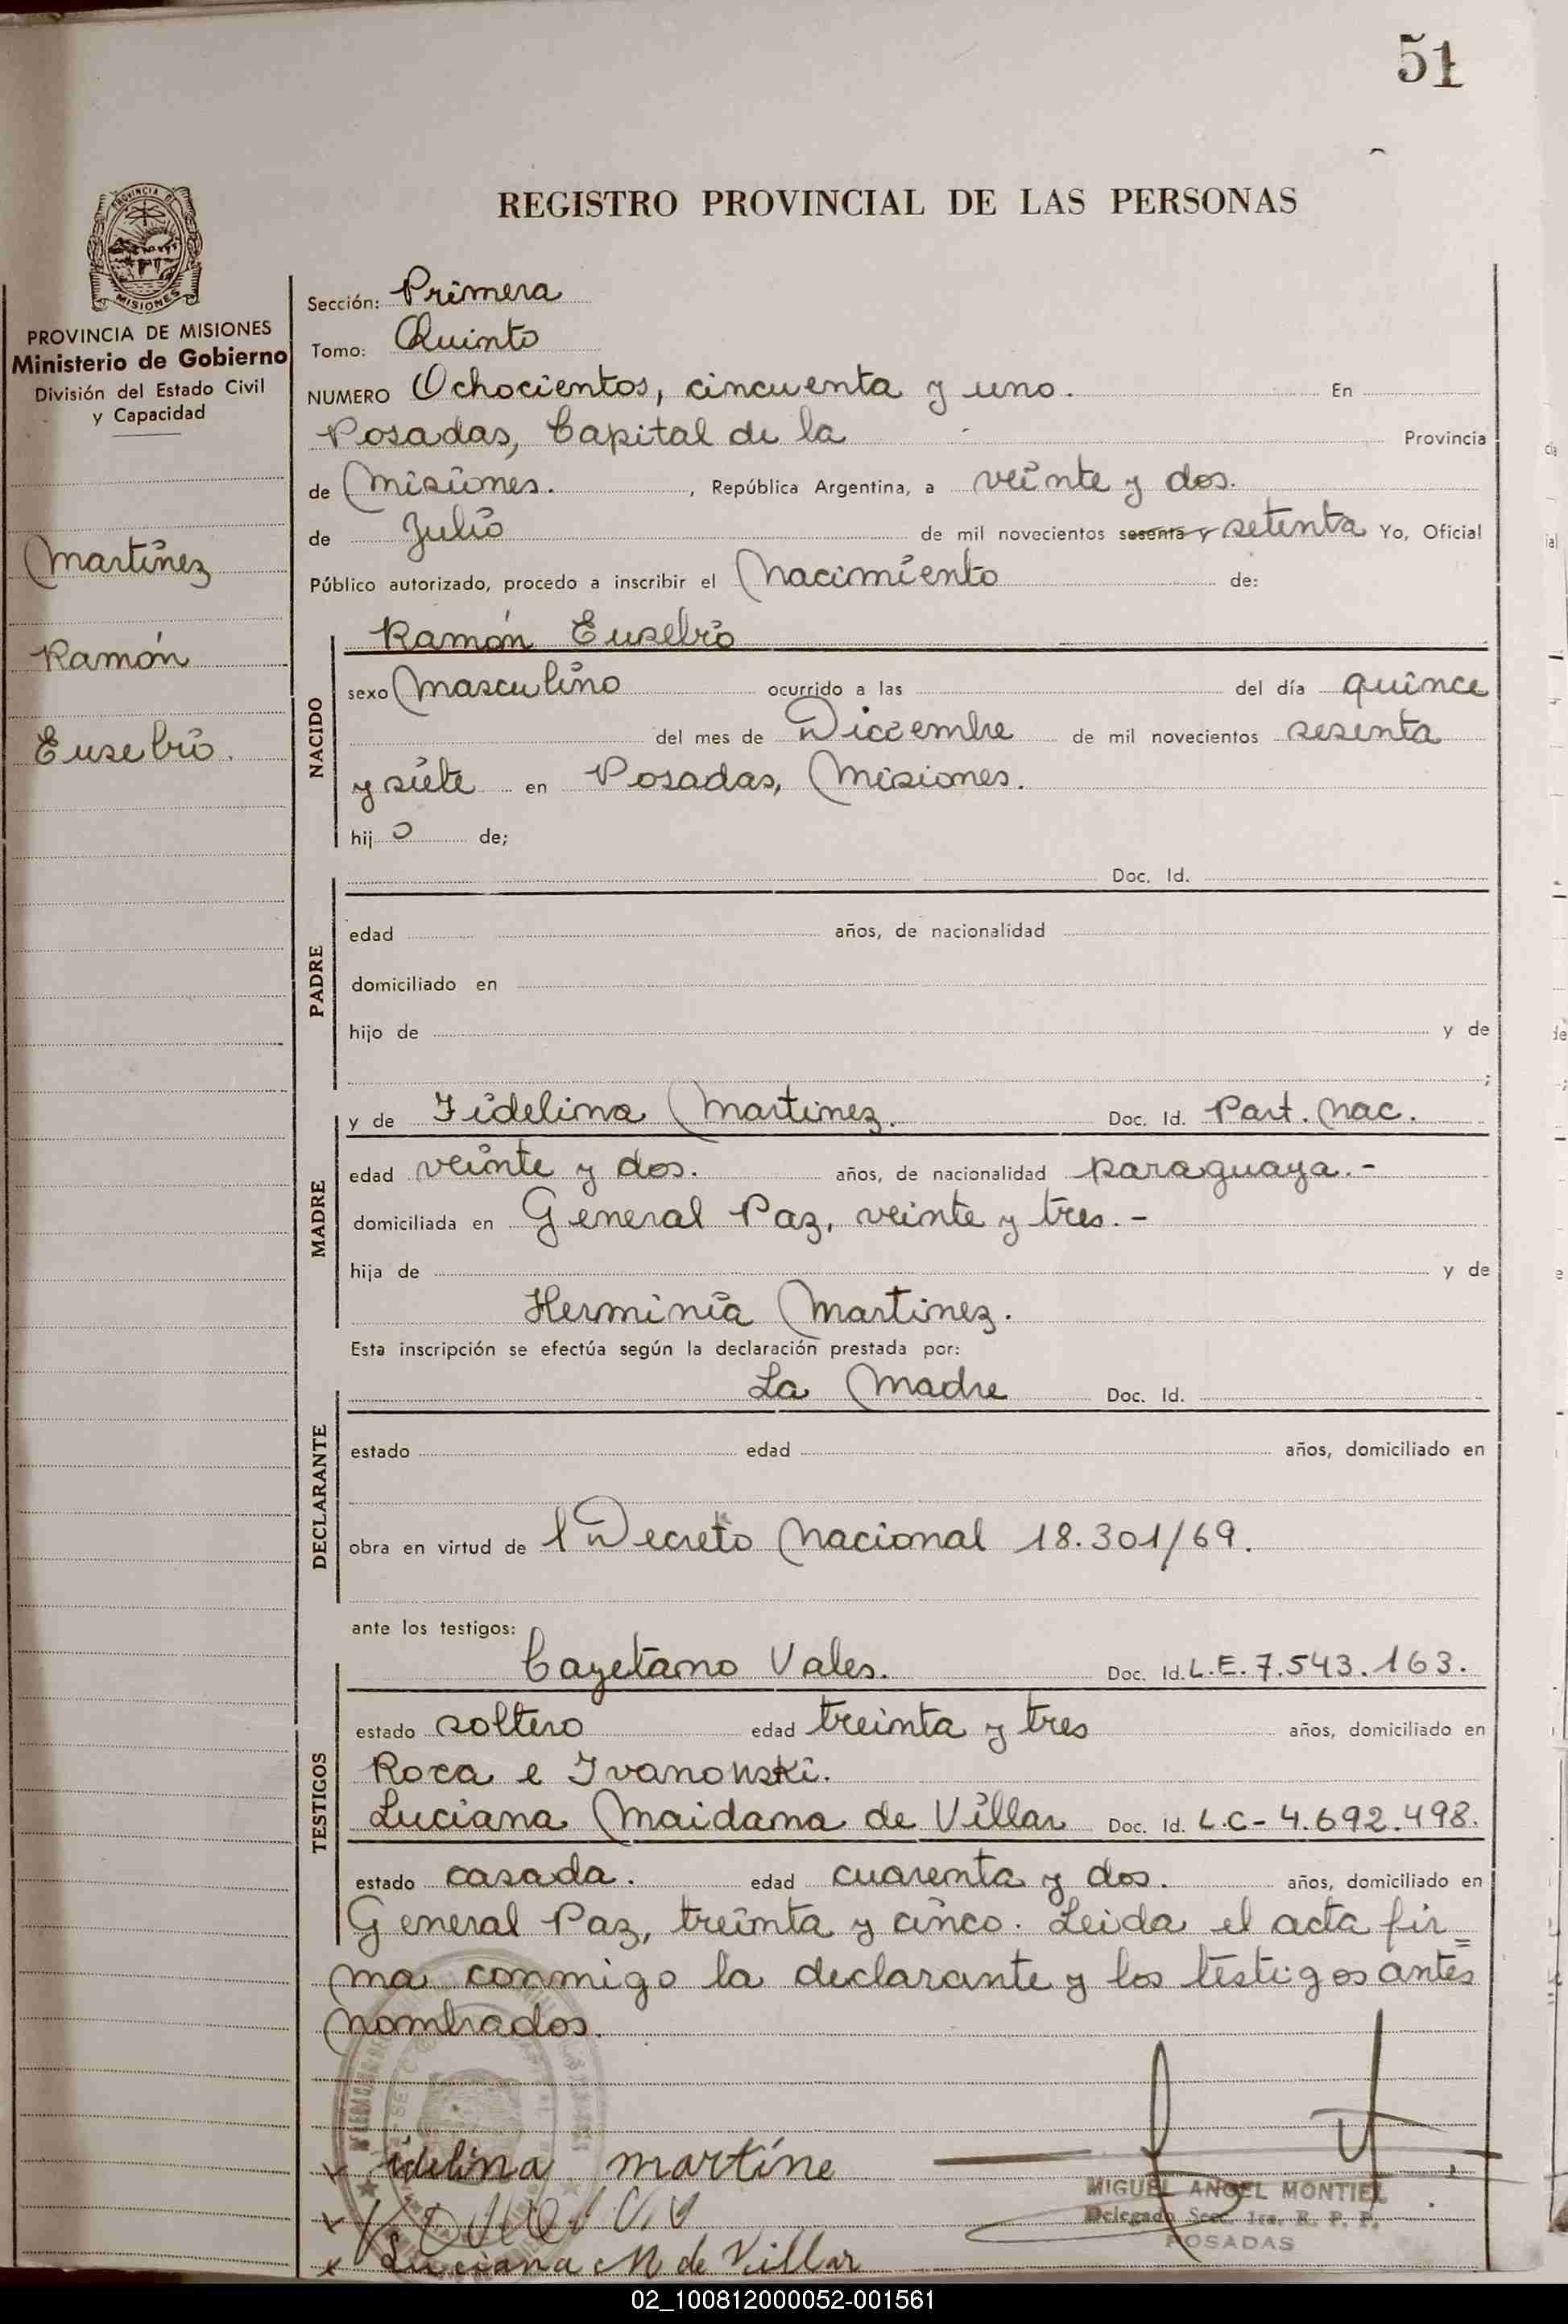 51
REGISTRO PROVINCIAL DE LAS PERSONAS
PROVINCIA DE MISIONES
Ministerio de Gobierno
División del Estado Civil
y Capacidad
Martínez
Ramón
Eusebio.
Sección: Primera
Tomo: Quinto
NUMERO Ochocientos, cincuenta y uno. En
Posadas, Capital de la Provincia
de Misiones. , República Argentina, a veinte y dos.
de Julio de mil novecientos sesenta y setenta Yo, Oficial
Público autorizado, procedo a inscribir el Nacimiento de:
NACIDO
Ramón Eusebio
sexo Masculino ocurrido a las del día quince
del mes de Diciembre de mil novecientos sesenta
y siete en Posadas, Misiones.
hij o de;
PADRE
Doc. Id.
edad años, de nacionalidad
domiciliado en
hijo de y de
;
MADRE
y de Fidelina Martinez. Doc. Id. Part. Nac.
edad veinte y dos. años, de nacionalidad paraguaya.-
domiciliada en General Paz, veinte y tres.-
hija de y de
Herminia Martinez.
Esta inscripción se efectúa según la declaración prestada por:
DECLARANTE
La Madre Doc. Id.
estado edad años, domiciliado en
obra en virtud de l Decreto Nacional 18.301/69.
ante los testigos:
TESTIGOS
Cayetano Vales. Doc. Id. L.E. 7.543.163.
estado soltero edad treinta y tres años, domiciliado en
Roca e Ivanowski.
Luciana Maidana de Villar Doc. Id. L.C- 4.692.498.
estado casada. edad cuarenta y dos. años, domiciliado en
General Paz, treinta y cinco. Leida el acta fir=
ma conmigo la declarante y los testigos antes
nombrados.
Fidelina martíne
Luciana M de Villar
MIGUEL ANGEL MONTIEL
Delegado Secc. 1ra. R. P. P.
POSADAS
02_100812000052-001561